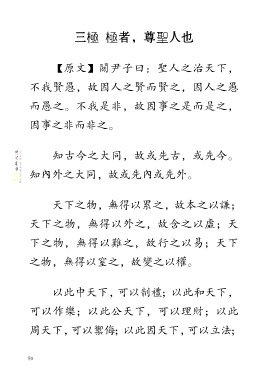 三極 極者，尊聖人也
【原文】關尹子曰：聖人之治天下，
不我賢愚，故因人之賢而賢之，因人之愚
而愚之。不我是非，故因事之是而是之，
因事之非而非之。
知古今之大同，故或先古，或先今。
知內外之大同，故或先內或先外。
天下之物，無得以累之，故本之以謙；
天下之物，無得以外之，故含之以虛；天
下之物，無得以難之，故行之以易；天下
之物，無得以窒之，故變之以權。
以此中天下，可以制禮；以此和天下，
可以作樂；以此公天下，可以理財；以此
周天下，可以禦侮；以此因天下，可以立法；